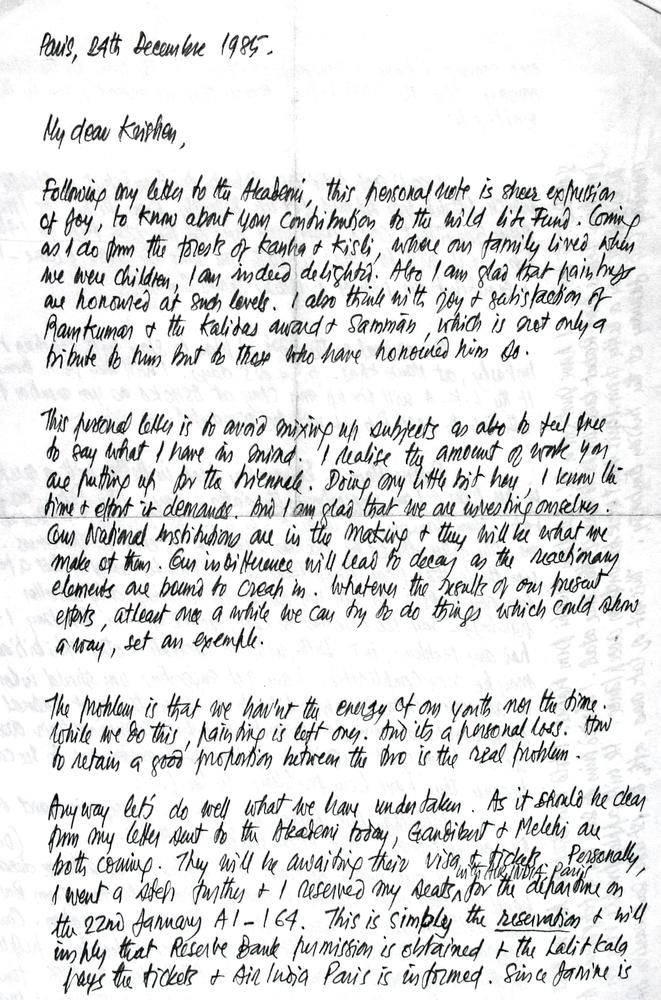 Paris, 24th Decembre 1985.
My dear Krishen,
Following my letter to the Akademi, this personal note is sheer expression
of joy, to know about your contribution to the wild life Fund. Coming
as I do from the forests of Kanha & Kisli, where our family lived when
we were children, I am indeed delighted. Also I am glad that paintings
are honoured at such levels. I also think with joy & satisfaction of
Ramkumar & the Kalidas award & Sammān, which is not only a
tribute to him but to those who have honoured him so.
This personal letter is to avoid mixing up subjects as also to feel free
to say what I have in mind. I realise the amount of work you
are putting up for the triennale. Doing my little bit here, I know the
time & effort it demands. And I am glad that we are investing ourselves.
Our National Institutions are in the making & they will be what we
make of them. Our indifference will lead to decay as the reactionary
elements are bound to creap in. Whatever the results of our present
efforts, atleast once a while we can try to do things which could show
a way, set an exemple.
The problem is that we hav'nt the energy of our youth nor the time.
While we do this, painting is left over. And its a personal loss. How
to retain a good proportion between the two is the real problem.
Anyway let's do well what we have undertaken. As it should be clear
from my letter sent to the Akademi today, Gaudibert & Melehi are
both coming. They will be awaiting their visa & tickets. Personally,
I went a step further & I reserved my seats with AIR INDIA Paris for the departure on
the 22nd January AI-164. This is simply the reservation & will
imply that Reserve Bank permission is obtained & the Lalit Kala
pays the tickets & Air India Paris is informed. Since Janine is